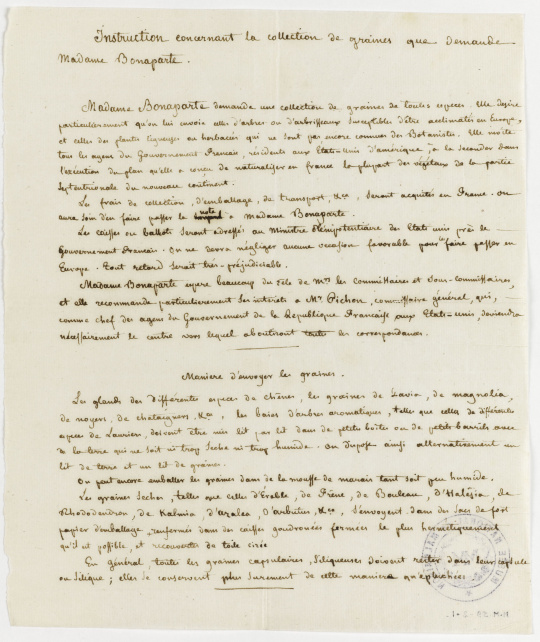 Instruction concernant la collection de graines que demande
Madame Bonaparte.
Madame Bonaparte demande une collection de graines de toutes especes. Elle desire
particulièrement qu'on lui envoie celles d'arbres ou d'arbrisseaux susceptibles d'être acclimatés en Europe,
et celles des plantes ligneuses ou herbacées qui ne sont pas encore connues des Botanistes. Elle invite
tous les agens du Gouvernement Français, résidents aux Etats-Unis d'amérique, à la seconder dans
l'exécution du plan qu'elle a conçu de naturaliser en france la plupart des végétaux de la partie
Septentrionale du nouveau continent.
Les frais de collection, d'emballage, de transport, &ca, seront acquittés en france. on
aura soin d'en faire passer la note à Madame Bonaparte.
Les caisses ou ballots seront adressés au Ministre Plénipotentiaire des Etats unis près le
Gouvernement français. On ne devra négliger aucune occasion favorable pour les faire passer en
Europe. Tout retard serait très-préjudiciable.
Madame Bonaparte espere beaucoup du zèle de Mrs les Commissaires et Sous-commissaires,
et elle recommande particulièrement ses intérêts à Mr. Pichon, commissaire général, qui,
comme chef des agens du Gouvernement de la République Française aux Etats-unis, deviendra
nécessairement le centre vers lequel aboutiront toutes les correspondances.
Maniere d'envoyer les graines.
Les glands des différentes especes de chênes, les graines de Pavia, de magnolia,
de noyers, de chataigners, &ca, les baies d'arbres aromatiques, telles que celles de différentes
especes de Lauriers, doivent être mis lit par lit dans de petites boîtes ou de petits barils avec
de la terre qui ne soit ni trop seche ni trop humide. On dispose ainsi alternativement un
lit de terre et un lit de graines.
On peut encore emballer les graines dans de la mousse de marais tant soit peu humide.
Les graines seches, telles que celles d'Erable, de frêne, de Bouleau, d'Halésia, de
Rhododendron, de Kalmia, d'azalea, d'arbutus, &ca, s'envoyent dans des sacs de fort
papier d'emballage, renfermés dans des caisses goudronées fermées le plus hermétiquement
qu'il est possible, et recouvertes de toile cirée.
En général, toutes les graines capsulaires, siliqueuses doivent rester dans leur capsule
ou silique; elles se conservent plus surement de cette maniere qu'épluchées.